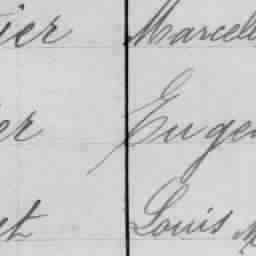 ier Marcel
er Eugen
et Louis M